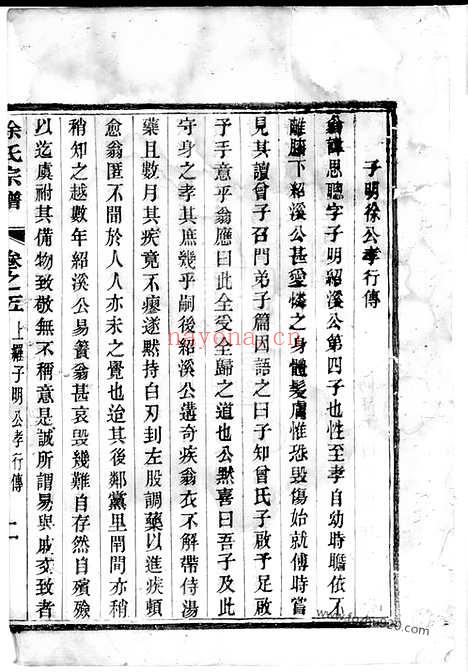 子明徐公孝行傳
翁諱思聰字子明紹溪公第四子也性至孝自幼時瞻依不
離膝下紹溪公甚愛憐之身體髮膚惟恐毀傷始就傅時嘗
見其讀曾子召門弟子篇因語之曰子知曾氏子啟予足啟
予手意乎翁應曰此全受全歸之道也公默喜曰吾子及此
守身之孝其庶幾乎嗣後紹溪公遘奇疾翁衣不解帶侍湯
藥且數月其疾竟不瘳遂默持白刃刲左股調藥以進疾頓
愈翁匿不聞於人人亦未之覺也迨其後鄰黨里閈間亦稍
稍知之越數年紹溪公易簀翁甚哀毀幾難自存然自殯殮
以迄虞祔其備物致敬無不稱意是誠所謂易與戚交致者
徐氏宗譜
卷之五
上羅子明公孝行傳
一
nayona.cn